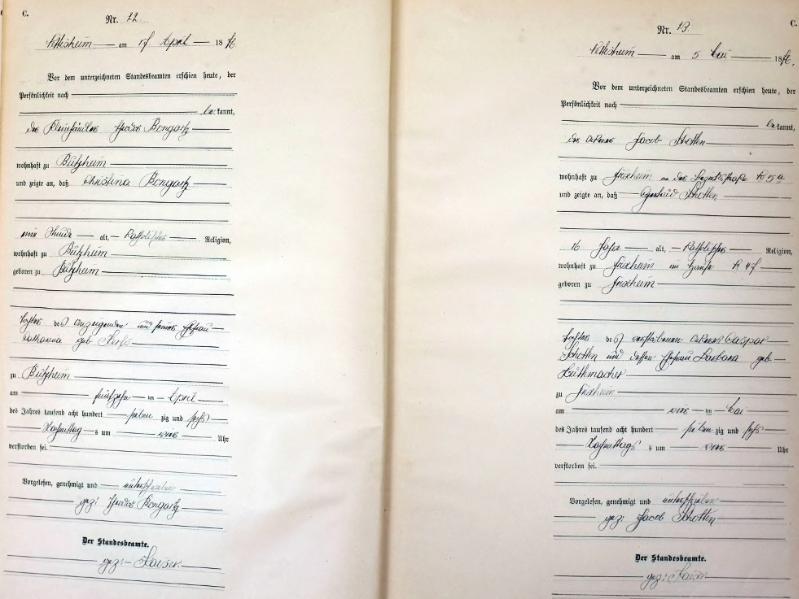 C.
Nr. 12.
am April 1876
Vor dem unterzeichneten Standesbeamten erschien heute, der
Persönlichkeit nach
be kannt,
Theodor Bongartz
wohnhaft zu Bützheim
und zeigte an, daß Christina Bongartz
eine Stunde alt, katholischer Religion,
wohnhaft zu Bützheim
geboren zu Bützheim
Tochter des Anzeigenden und seiner Ehefrau
Katharina geb.
zu Bützheim
am fünfzehn ten April
des Jahres tausend acht hundert sieben zig und sechs
Nachmittag s um Uhr
verstorben sei.
Vorgelesen, genehmigt und unterschrieben
gez: Theodor Bongartz
Der Standesbeamte.
gez:
C.
Nr. 13.
am 5 Mai 1876.
Vor dem unterzeichneten Standesbeamten erschien heute, der
Persönlichkeit nach
be kannt,
der Ackerer Jacob Schotten
wohnhaft zu Frixheim an der
und zeigte an, daß Gertrud Schotten
16 Jahre alt, katholischer Religion,
wohnhaft zu Frixheim im Hause
geboren zu Frixheim
Tochter des verstorbenen Ackerers Caspar
Schotten und dessen Ehefrau Barbara geb.
zu Frixheim
am ten Mai
des Jahres tausend acht hundert sieben zig und sechs
Nachmittags um Uhr
verstorben sei.
Vorgelesen, genehmigt und unterschrieben
gez: Jacob Schotten
Der Standesbeamte.
gez: